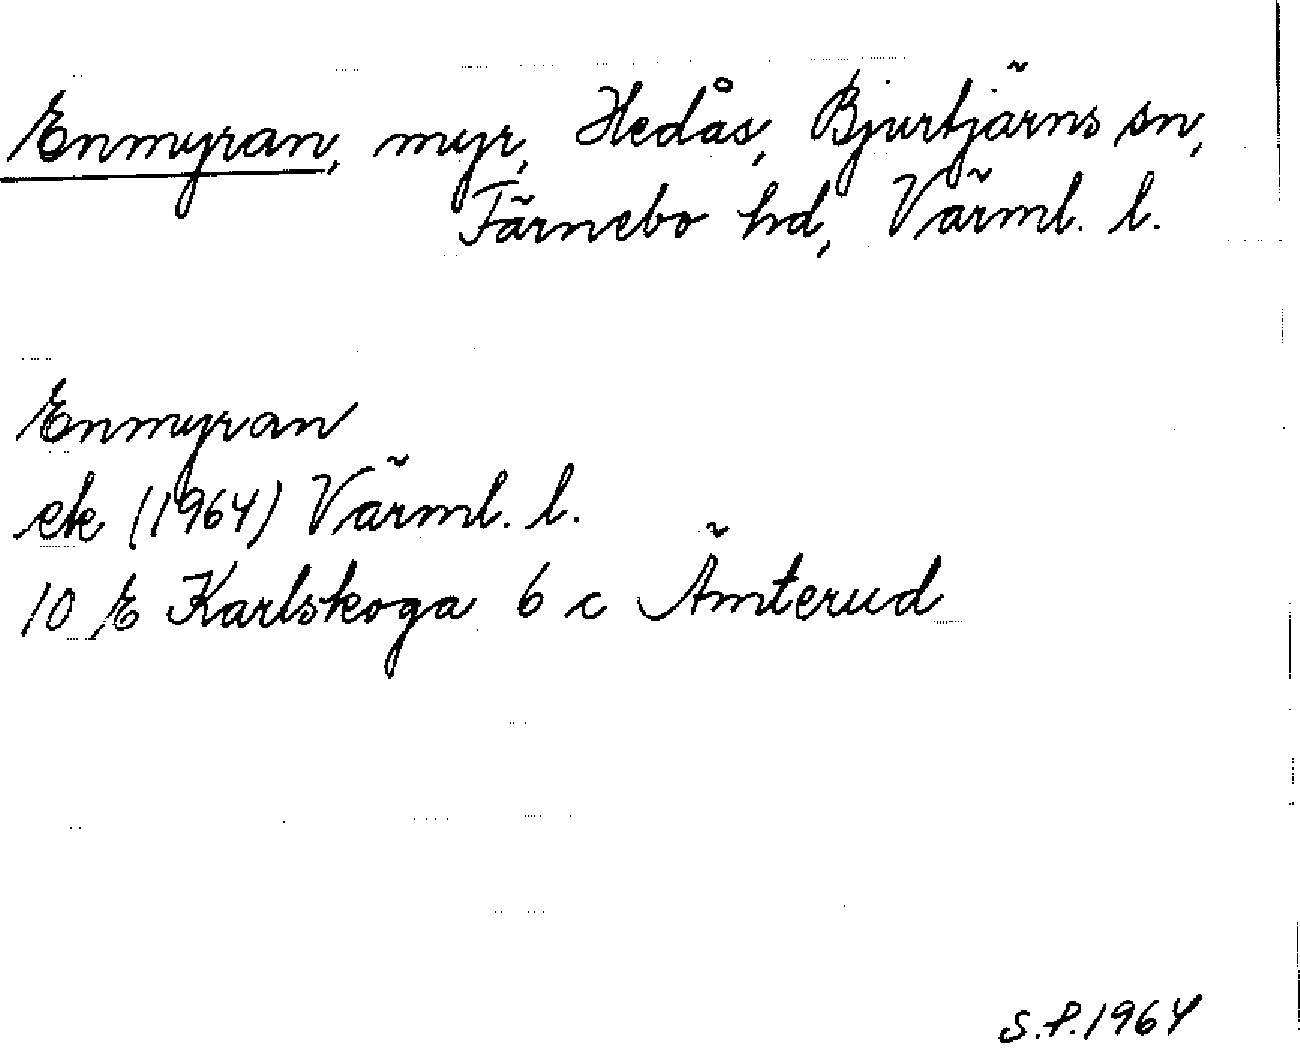 Enmyran, myr, Hedås, Bjurtjärns sn,
Färnebo hd, Värml. l.
Enmyran
ek (1964) Värml. l.
10 E Karlskoga 6 c Ämterud
S.P. 1964